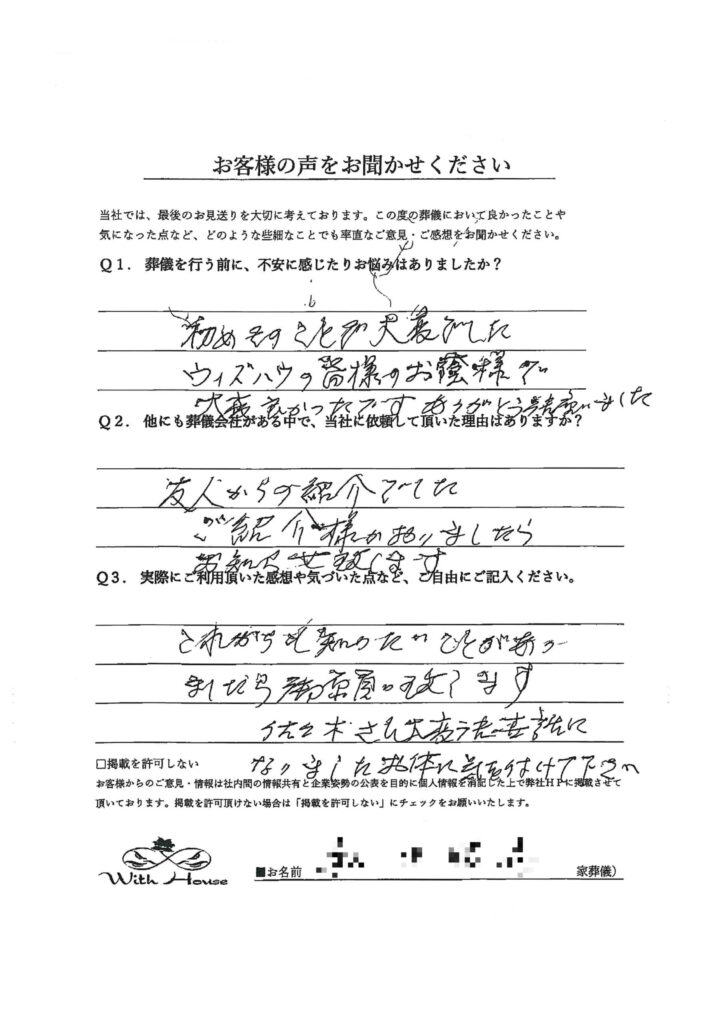 お客様の声をお聞かせください
当社では、最後のお見送りを大切に考えております。この度の葬儀において良かったことや
気になった点など、どのような些細なことでも率直なご意見・ご感想をお聞かせください。
Q1. 葬儀を行う前に、不安に感じたりお悩みはありましたか?
初めてのことで大変でした
ウィズハウの皆様のお陰様で
大変良かったです ありがとう御座いました
Q2. 他にも葬儀会社がある中で、当社に依頼して頂いた理由はありますか?
友人からの紹介でした
ご紹介様がおりましたら
お知らせ致します
Q3. 実際にご利用頂いた感想や気づいた点など、ご自由にご記入ください。
これからも知りたいことがあり
ましたら 致します
佐々木さん大変 お世話に
なりましたお体に気を付けて下さい
□掲載を許可しない
お客様からのご意見・情報は社内間の情報共有と企業姿勢の公表を目的に個人情報を消記した上で弊社HPに掲載させて
頂いております。掲載を許可頂けない場合は「掲載を許可しない」にチェックをお願いいたします。
With House
■お名前 家葬儀)